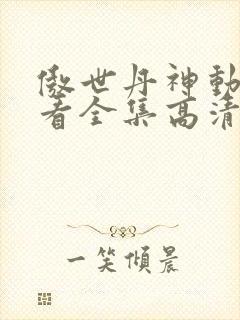 傲世丹神動
看全集高清
一笑傾晨